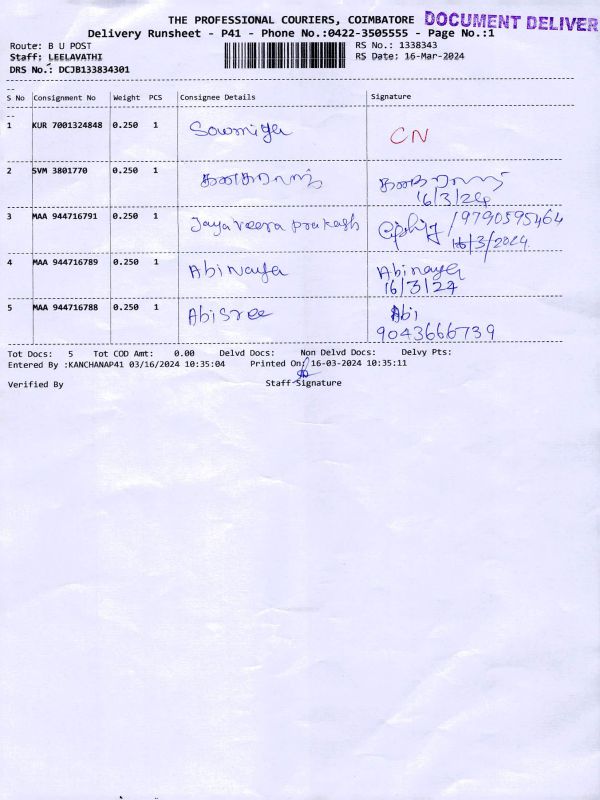 THE PROFESSIONAL COURIERS, COIMBATORE
DOCUMENT DELIVER
Delivery Runsheet - P41 - Phone No.:0422-3505555 - Page No.:1
Route: B U POST
RS No.: 1338343
Staff: LEELAVATHI
RS Date: 16-Mar-2024
DRS No.: DCJB133834301
S No Consignment No Weight PCS Consignee Details Signature
1 KUR 7001324848 0.250 1 Sowmiya CN
2 SVM 3801770 0.250 1
16/3/24
3 MAA 944716791 0.250 1 Jaya veera prakash /9790595464
16/3/2024
4 MAA 944716789 0.250 1 Abinaya Abinaya
16/3/24
5 MAA 944716788 0.250 1 Abisree Abi
9043666739
Tot Docs: 5 Tot COD Amt: 0.00 Delvd Docs: Non Delvd Docs: Delvy Pts:
Entered By :KANCHANAP41 03/16/2024 10:35:04 Printed On: 16-03-2024 10:35:11
Verified By Staff Signature